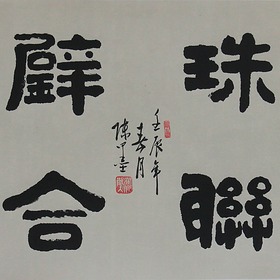 珠聯
璧合
壬辰年
春月
陳中墨